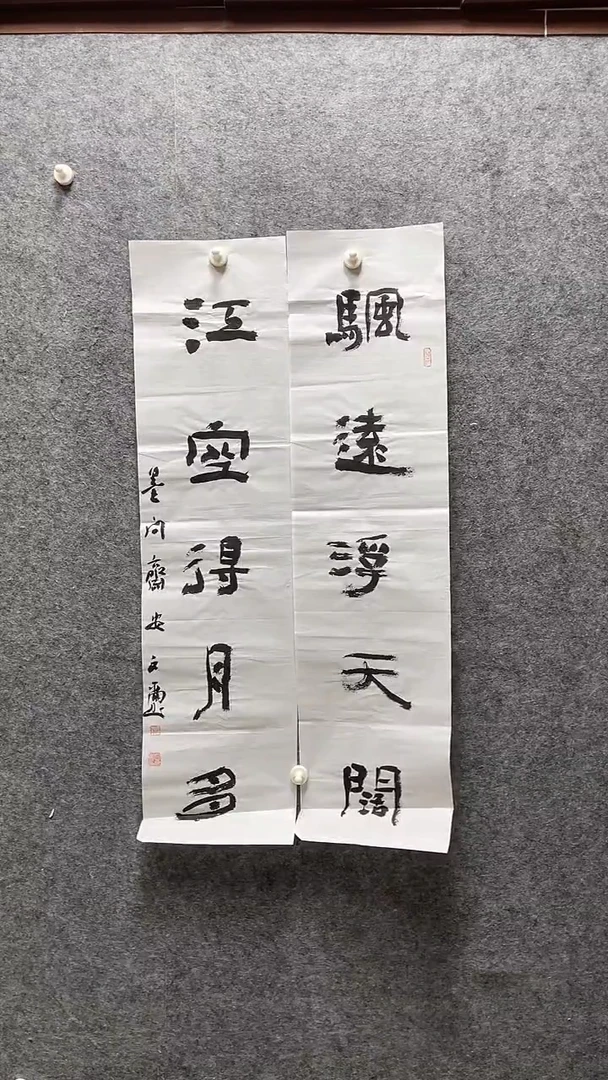 颿遠浮天闊
江空得月多
墨 齋安